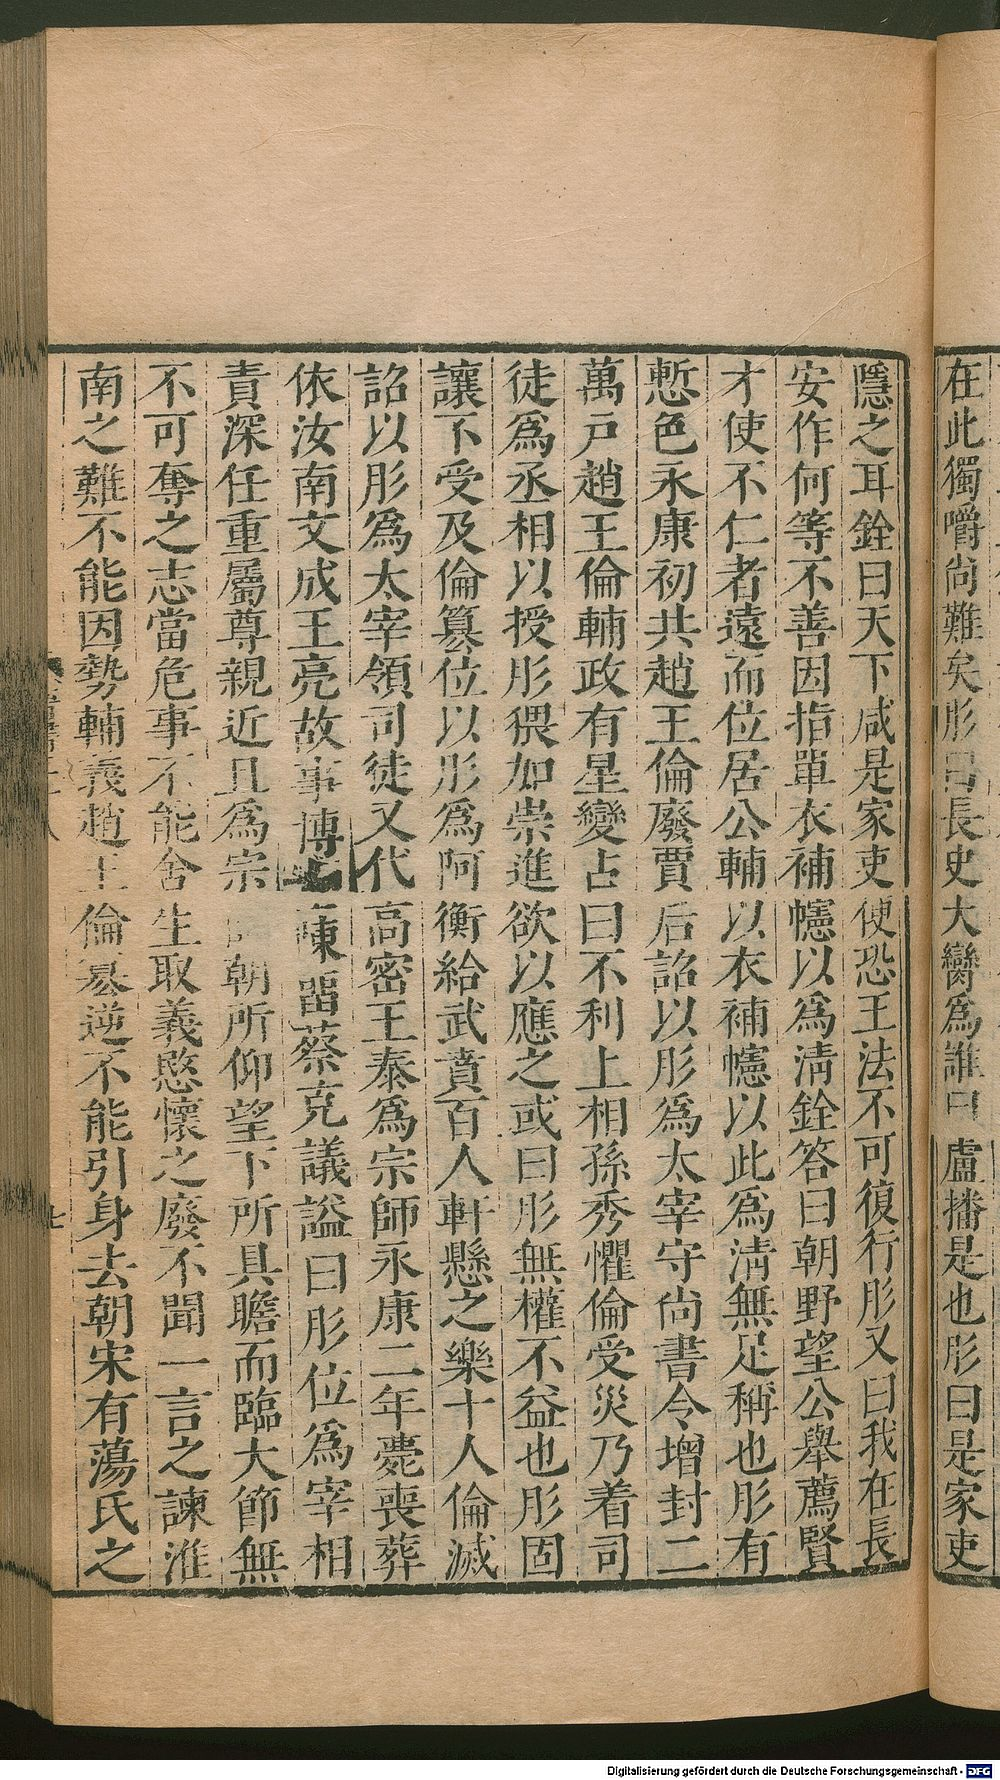 在此獨嚼尚難矣肜曰長史大臠爲誰曰盧播是也肜曰是家吏
隱之耳銓曰天下咸是家吏便恐王法不可復行肜又曰我在長
安作何等不善因指單衣補幰以爲清銓答曰朝野望公舉薦賢
才使不仁者遠而位居公輔以衣補幰以此爲清無足稱也肜有
慙色永康初共趙王倫廢賈后詔以肜爲太宰守尚書令增封二
萬戸趙王倫輔政有星變占曰不利上相孫秀懼倫受災乃着司
徒爲丞相以授肜猥加崇進欲以應之或曰肜無權不益也肜固
讓不受及倫簒位以肜爲阿衡給武賁百人軒懸之樂十人倫滅
詔以肜爲太宰領司徒又代高密王泰爲宗師永康二年薨喪葬
依汝南文成王亮故事博陳畱蔡克議謚曰肜位爲宰相
責深任重屬尊親近且爲宗朝所仰望下所具瞻而臨大節無
不可奪之志當危事不能舍生取義愍懷之廢不聞一言之諫淮
南之難不能因勢輔義趙王倫簒逆不能引身去朝宋有蕩氏之
七
Digitalisierung gefördert durch die Deutsche Forschungsgemeinschaft - DFG